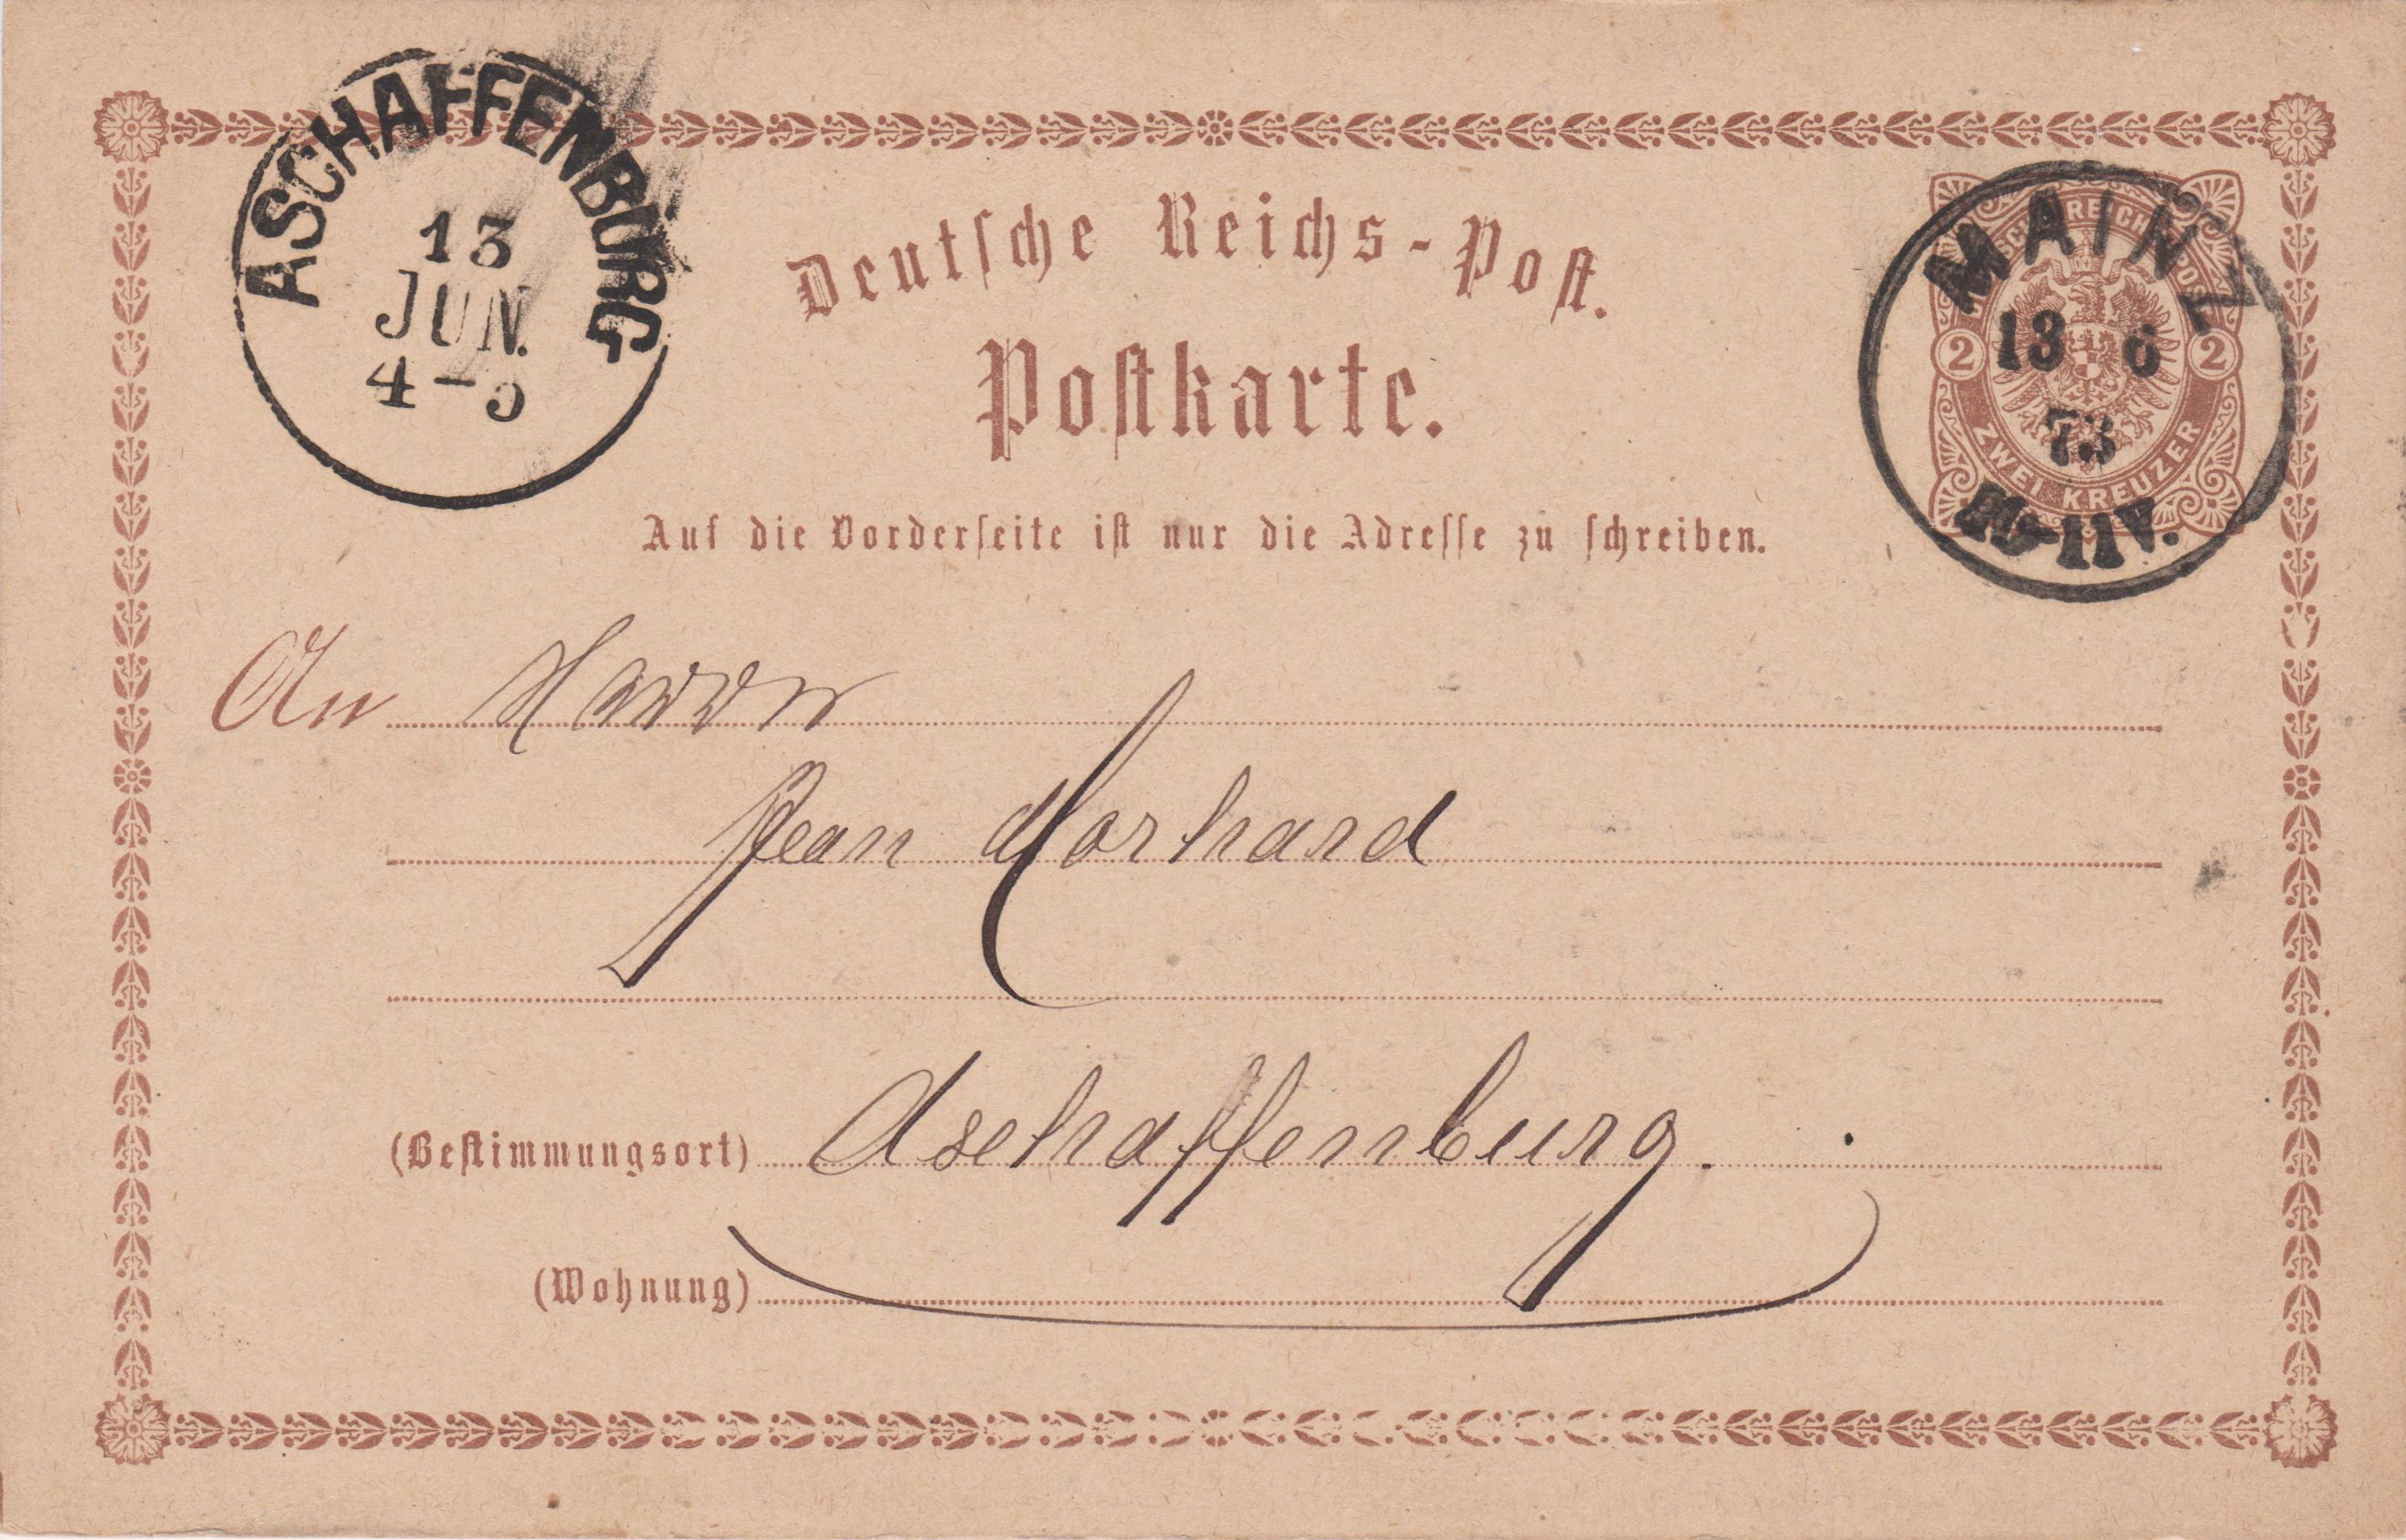 ASCHAFFENBURG
13
JUN.
4-5
Deutsche Reichs-Post.
Postkarte.
DEUTSCHE REICHSPOST
2 2
ZWEI KREUZER
MAINZ
13 6
73
11V.
Auf die Vorderseite ist nur die Adresse zu schreiben.
An Herrn
Jean Morhard
(Bestimmungsort) Aschaffenburg.
(Wohnung)